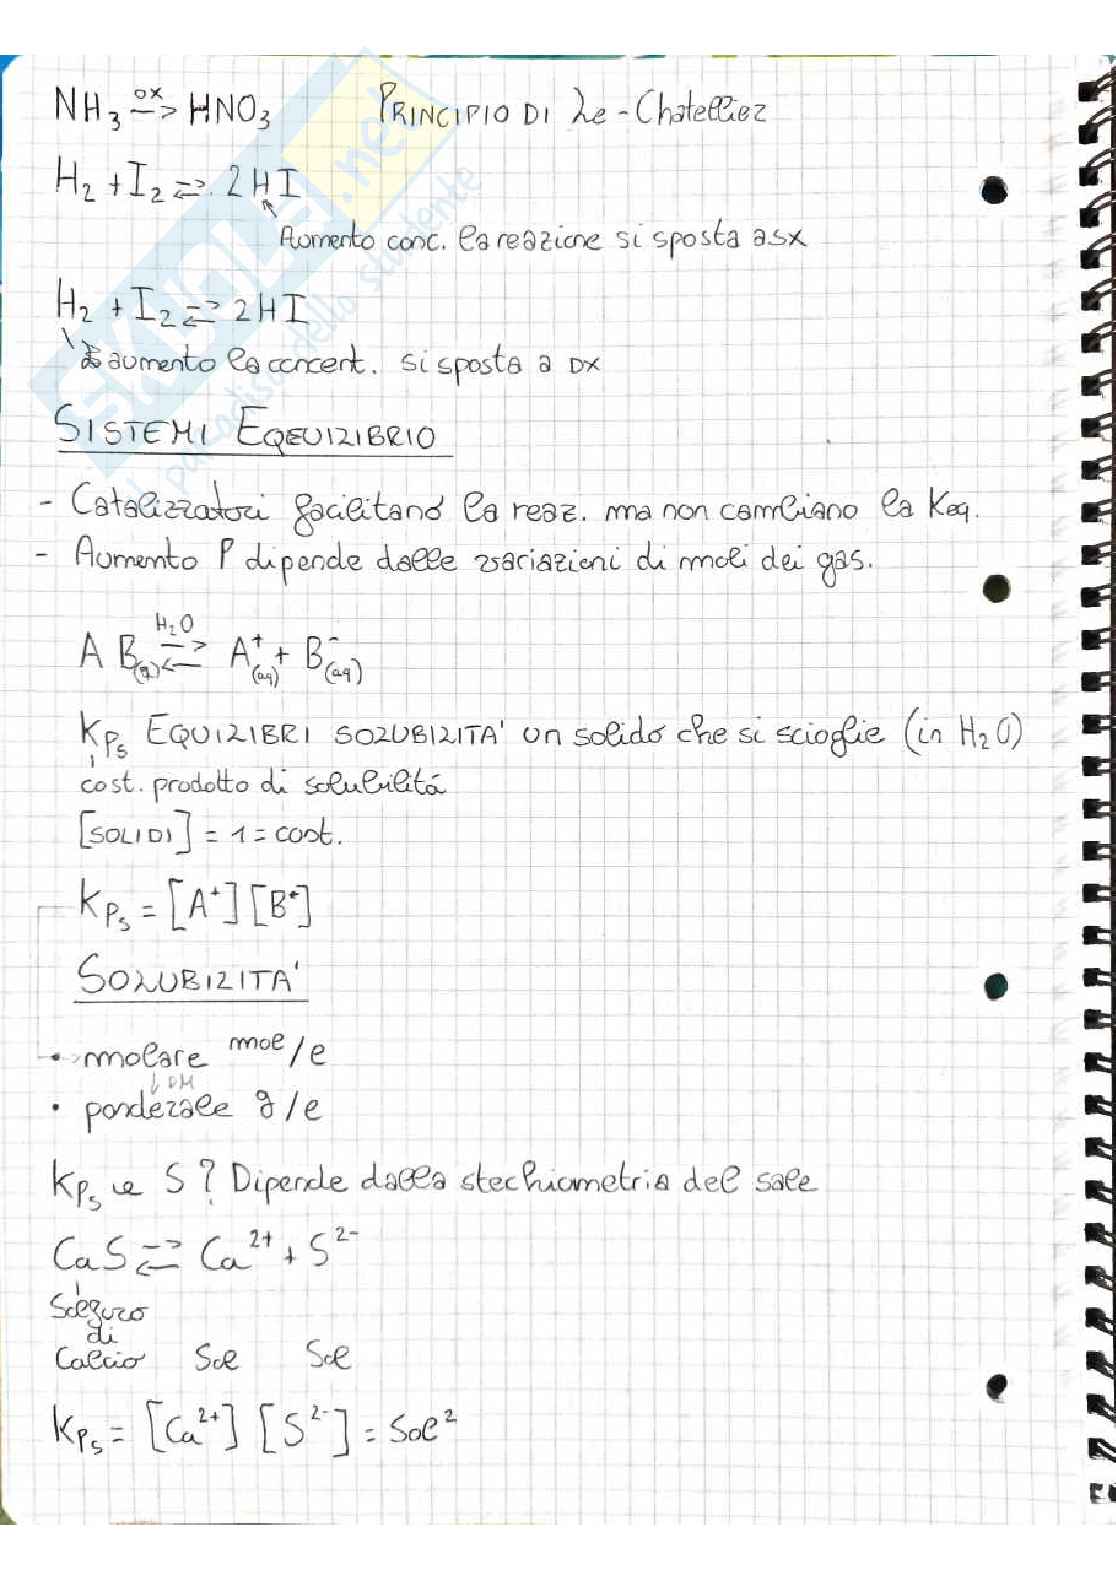 NH₃ —ox—> HNO₃ PRINCIPIO DI Le-Chatelier
H₂ + I₂ ⇌ 2HI
Aumento conc. la reazione si sposta a sx
H₂ + I₂ ⇌ 2HI
aumento la concent. si sposta a DX
SISTEMI EQEUILIBRIO
- Catalizzatori facilitano la reaz. ma non cambiano la Keq.
- Aumento P dipende dalle variazioni di moli dei gas.
H₂O
A B ⇌ A⁺(aq) + B⁻(aq)
Kps EQUILIBRI SOLUBILITA' un solido che si scioglie (in H₂O)
cost. prodotto di solubilità
[SOLIDI] = 1 = cost.
Kps = [A⁺] [B⁺]
SOLUBILITA'
• molare mol/l
↓ PM
• ponderale g/l
Kps e S? Dipende dalla stechiometria del sale
CaS ⇌ Ca²⁺ + S²⁻
Solfuro
di
Calcio Sol Sol
Kps = [Ca²⁺] [S²⁻] = Sol²
SKUOLA.net
il paradiso dello studente